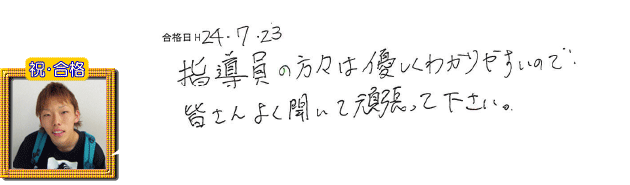 合格日 H24.7.23
祝・合格
指導員の方々は優しくわかりやすいので
皆さんよく聞いて頑張って下さい。